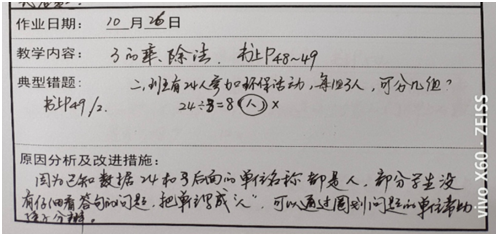 作业日期： 10 月 26 日
教学内容： 3的乘、除法. 书上P48~49
典型错题： 二、班主有24人参加环保活动，每组3人，可分几组？
书上P49/2. 24÷3=8(人) ×
原因分析及改进措施：
因为已知数据24和3后面的单位名称都是人，部分学生没
有仔细看答句的问题，把单位写成"人"，可以通过圈划问题的单位帮助
孩子分辨。
vivo X60 · ZEISS